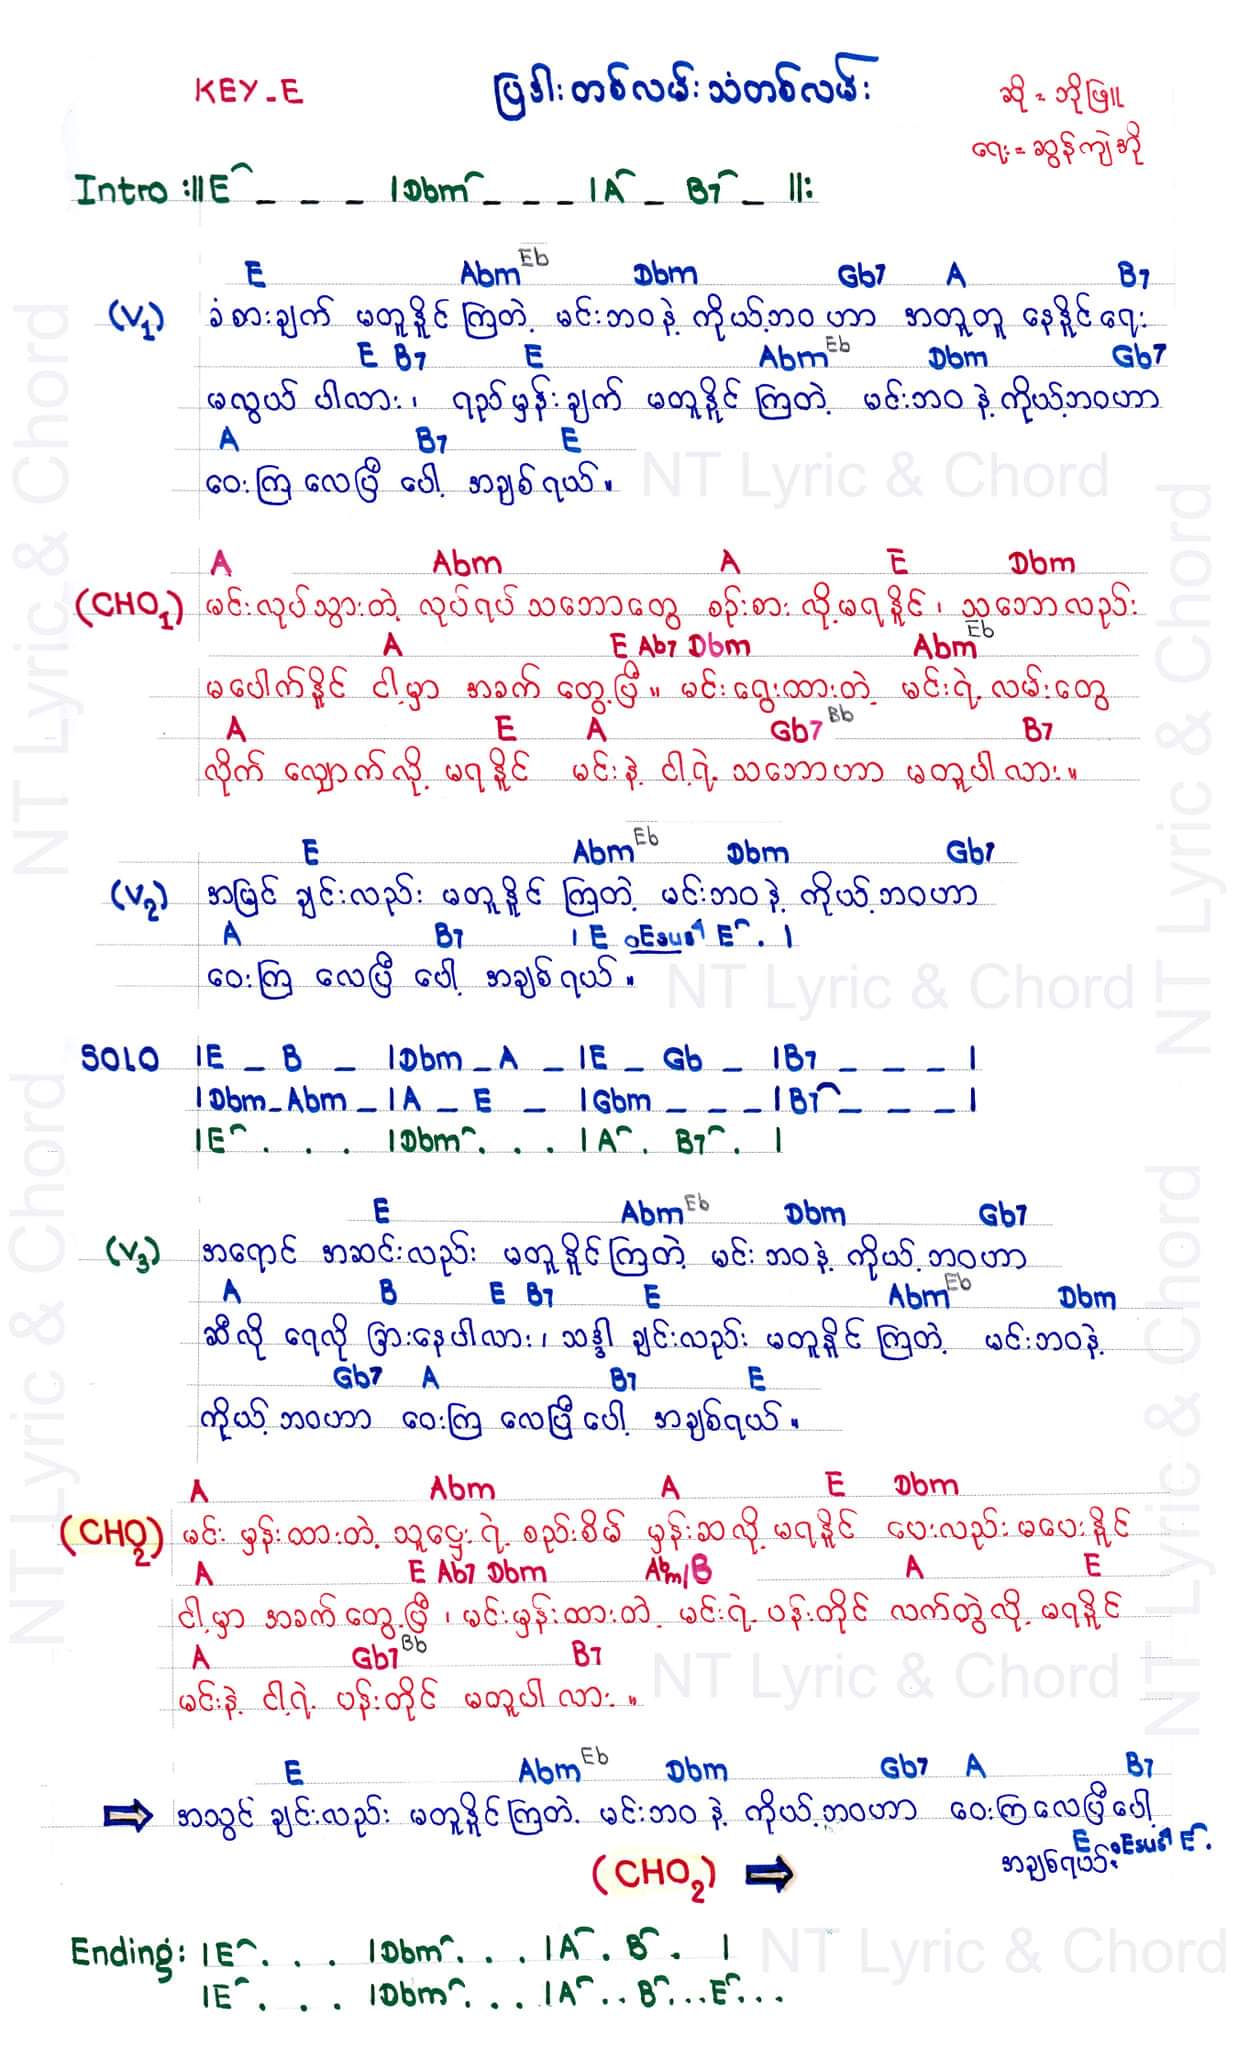 KEY-E
ပြဒါးတစ်လမ်းသံတစ်လမ်း
ဆို = ဘိုဖြူ
ရေး = ဆွန်ကျဲအို
Intro :||E^ _ _ _ |Dbm^ _ _ _ |A^ _ B7^ _ ||:
E Abm Eb Dbm Gb7 A B7
(V1) ခံစားချက် မတူနိုင်ကြတဲ့ မင်းဘဝနဲ့ ကိုယ့်ဘဝ ဟာ အတူတူ နေနိုင်ရေး
E B7 E Abm Eb Dbm Gb7
မလွယ် ပါလား၊ ရည်မှန်းချက် မတူနိုင်ကြတဲ့ မင်းဘဝ နဲ့ ကိုယ့်ဘဝဟာ
A B7 E
ဝေးကြ လေပြီ ပေါ့ အချစ်ရယ်။
NT Lyric & Chord
A Abm A E Dbm
(CHO1) မင်းလုပ်သွားတဲ့ လုပ်ရပ် သဘောတွေ စဉ်းစား လို့မရနိုင်၊ သဘောလည်း
A E Ab7 Dbm Abm Eb
မပေါက်နိုင် ငါ့မှာ အခက် တွေ့ပြီ။ မင်းရွေးထားတဲ့ မင်းရဲ့ လမ်းတွေ
A E A Gb7 Bb B7
လိုက် လျှောက်လို့ မရနိုင် မင်းနဲ့ ငါ့ရဲ့ သဘောဟာ မတူပါလား။
E Abm Eb Dbm Gb7
(V2) အမြင် ချင်းလည်း မတူနိုင် ကြတဲ့ မင်းဘဝ နဲ့ ကိုယ့်ဘဝဟာ
A B7 | E .Esus4 E^ . |
ဝေးကြ လေပြီ ပေါ့ အချစ်ရယ်။
NT Lyric & Chord
SOLO |E _ B _ |Dbm _ A _ |E _ Gb _ |B7 _ _ _ |
|Dbm _ Abm _ |A _ E _ |Gbm _ _ _ |B7^ _ _ _ |
|E^ . . . |Dbm^ . . . |A^ . B7^ . |
E Abm Eb Dbm Gb7
(V3) အရောင် အဆင်းလည်း မတူနိုင်ကြတဲ့ မင်းဘဝနဲ့ ကိုယ့်ဘဝဟာ
A B E B7 E Abm Eb Dbm
ဆီလို ရေလို ခြားနေပါလား၊ သဒ္ဒါ ချင်းလည်း မတူနိုင် ကြတဲ့ မင်းဘဝနဲ့
Gb7 A B7 E
ကိုယ့်ဘဝဟာ ဝေးကြ လေပြီပေါ့ အချစ်ရယ်။
A Abm A E Dbm
(CHO2) မင်း မှန်းထားတဲ့ သူဌေးရဲ့ စည်းစိမ် မှန်းဆလို့ မရနိုင် ပေးလည်းမပေးနိုင်
A E Ab7 Dbm Abm/B A E
ငါ့မှာ အခက်တွေ့ပြီ၊ မင်းမှန်းထားတဲ့ မင်းရဲ့ ပန်းတိုင် လက်တွဲလို့ မရနိုင်
A Gb7 Bb B7
မင်းနဲ့ ငါ့ရဲ့ ပန်းတိုင် မတူပါလား။
NT Lyric & Chord
E Abm Eb Dbm Gb7 A B7
⇒ အသွင် ချင်းလည်း မတူနိုင်ကြတဲ့ မင်းဘဝ နဲ့ ကိုယ့်ဘဝဟာ ဝေးကြလေပြီပေါ့
E .Esus4 E^ .
အချစ်ရယ်။
(CHO2) ⇒
Ending: |E^ . . . |Dbm^ . . . |A^ . B^ . |
NT Lyric & Chord
|E^ . . . |Dbm^ . . . |A^ . . B^ . . . E^ . . .
NT Lyric & Chord
NT Lyric & Chord
NT Lyric & Chord
NT Lyric & Chord